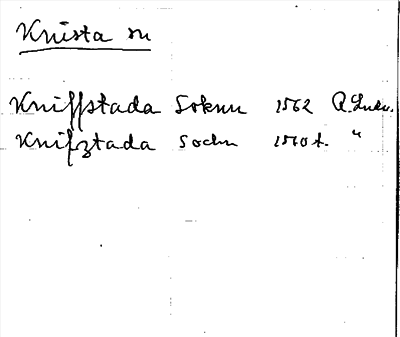 Knista sn
Kniffstada Soknn 1562
Knifztada Sochn 1570 t. "